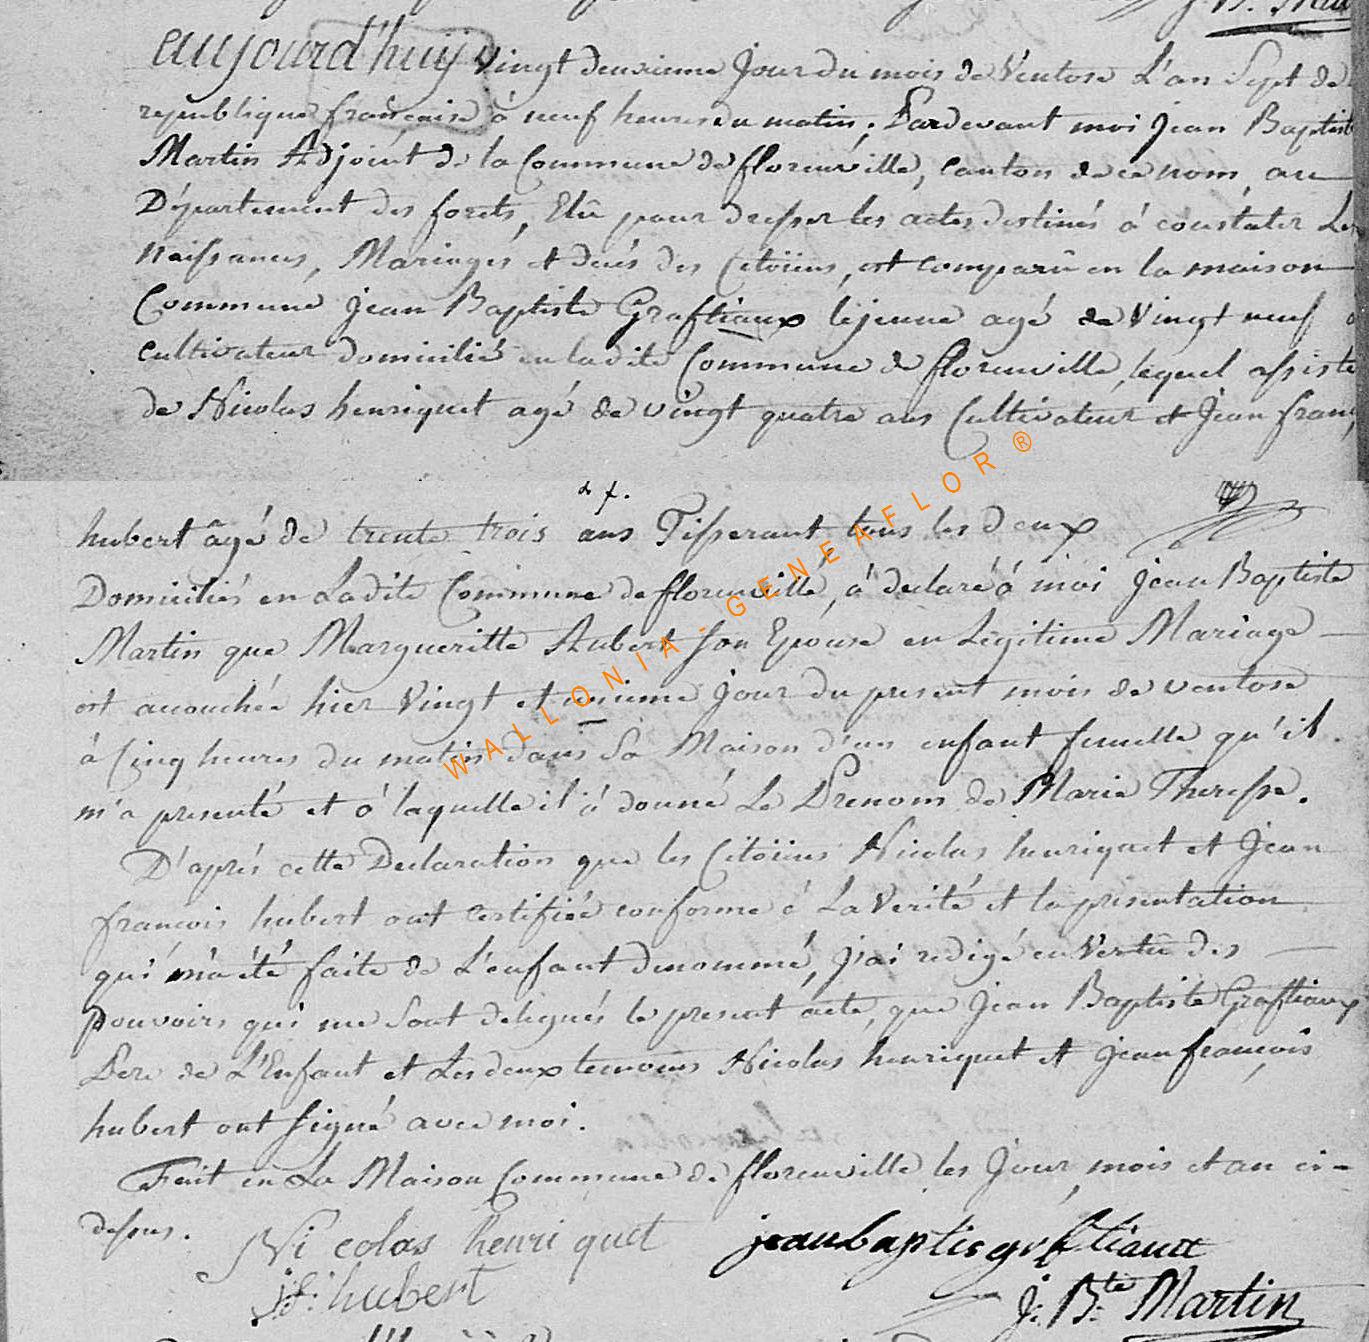 aujourd'huy vingt deuxieme Jour du mois de Ventose L'an Sept de
republique francaise à neuf heures du matin; Pardevant moi Jean Baptist
Martin Adjoint de la Commune de florenville, canton de ce nom, au
Département des forets, Elû pour dresser les actes destinés à constater Les
Naissances, Mariages et decés des Citoiens, est comparû en la maison
Commune Jean Baptiste Graftiaux lejeune agé de Vingt neuf
cultivateur domicilié en ladite Commune de florenville, lequel assisté
de Nicolas henriquet agé de vingt quatre ans Cultivateur et Jean franç
hubert âgé de trente trois ans Tisserant, tous les deux
Domiciliés en Ladite Commune de florenville, à declaré à moi Jean Baptiste
Martin que Margueritte Aubert son Epouse en Legitime Mariage
est acouchée hier Vingt et unieme jour du present mois de ventose
à Cinq heures du matin dans Sa Maison d'un enfant femelle qu'il
m'a presenté et à laquelle il à donné Le Prenom de Marie Theresse.
D'aprés cette Declaration que les Citoiens Nicolas henriquet et Jean
francois hubert ont certifiée conforme à La Verité et la presentation
qui m'a été faite de L'enfant denommé, j'ai redigé en Vertu des
pouvoirs qui me Sont delegués le present acte, que Jean Baptiste Graftiaux
Pere de L'Enfant et Les deux temoins Nicolas henriquet et Jean françois
hubert ont signé avec moi.
Fait en La Maison Commune de florenville les Jour, mois et an ci-
dessus.
Nicolas henriquet jean baptis graftiaux
j: f: hubert
J: B:te Martin
WALLONIA - GENEAFLOR ®